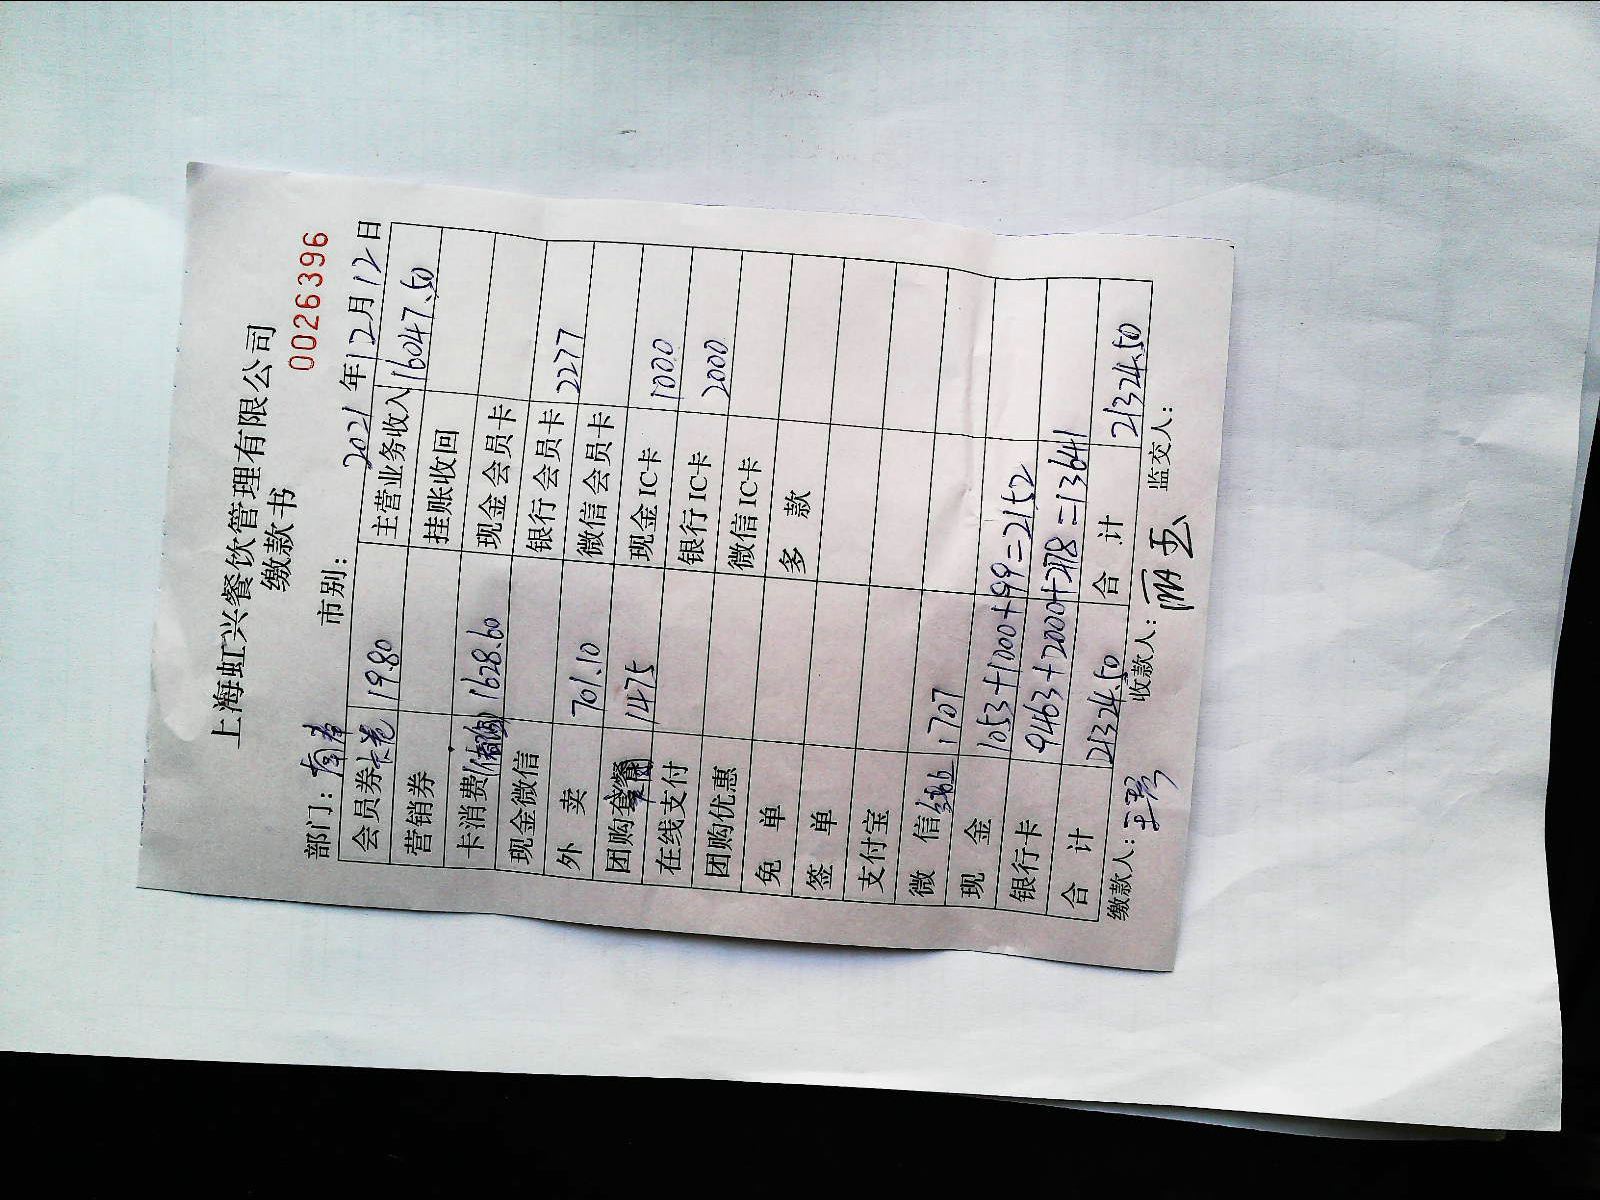 上海虹兴餐饮管理有限公司
缴款书
0026396
部门： 市别： 2021年12月12日
会员券 19.80 主营业务收入 16047.50
营销券 挂账收回
卡消费 1628.60 现金会员卡
现金微信 银行会员卡 2277
外卖 701.10 微信会员卡
团购套餐 1475 现金IC卡 1000
在线支付 银行IC卡 2000
团购优惠 微信IC卡
免单 多款
签单
支付宝
微信 1707
现金 1053+1000+99=2152
银行卡 9463+2000+2178=13641
合计 21324.50 合计 21324.50
缴款人： 收款人： 监交人：